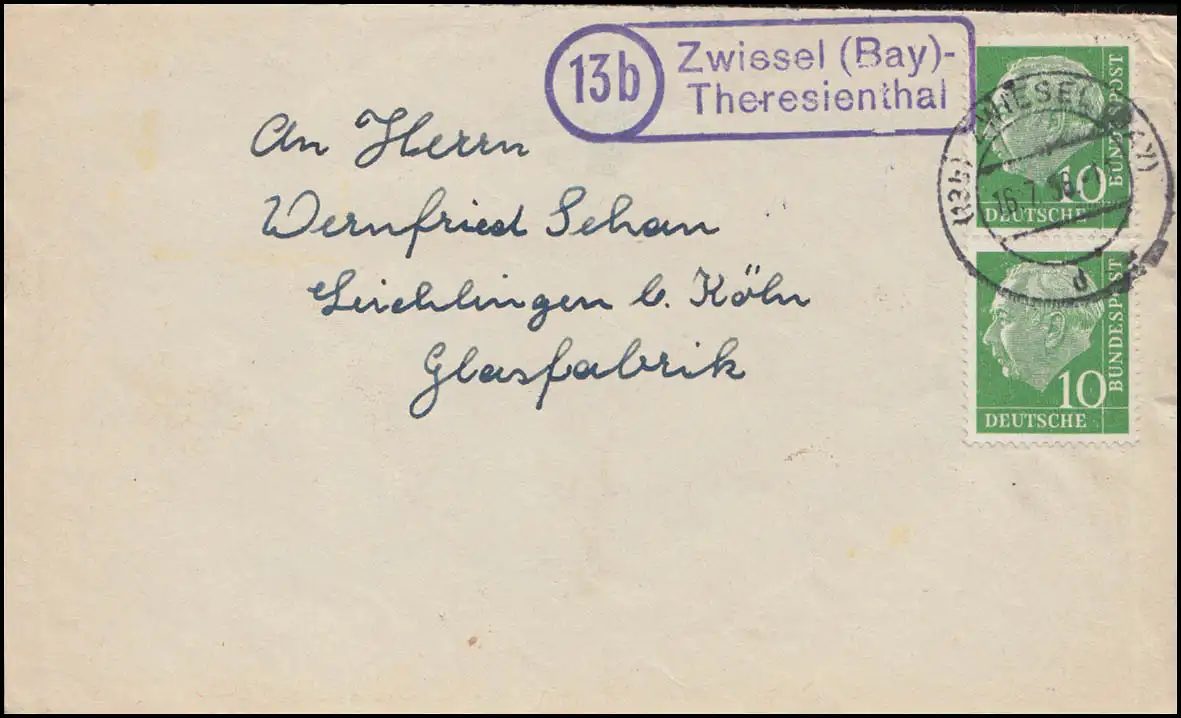 13b
Zwiesel (Bay)-
Theresienthal
An Herrn
Wernfried Sehan
Leichlingen b. Köln
Glasfabrik
(13b) ZWIESEL (BAY)
16.7.58.-1
d
10
DEUTSCHE
BUNDESPOST
10
DEUTSCHE
BUNDESPOST